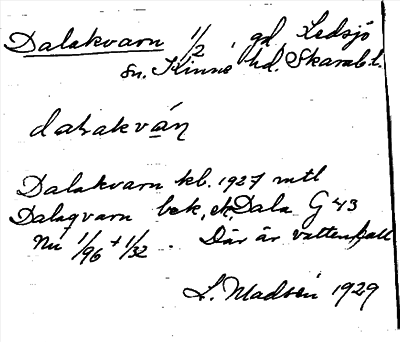 Dalakvarn 1/2, gd, Ledsjö
sn. Kinne hd. Skarab. l.
dalakván
Dalakvarn kb. 1927 mtl
Dalaqvarn bek, ek, Dala G 43
Nu 1/96 + 1/32. Där är vattenfall
L. Madsén 1929